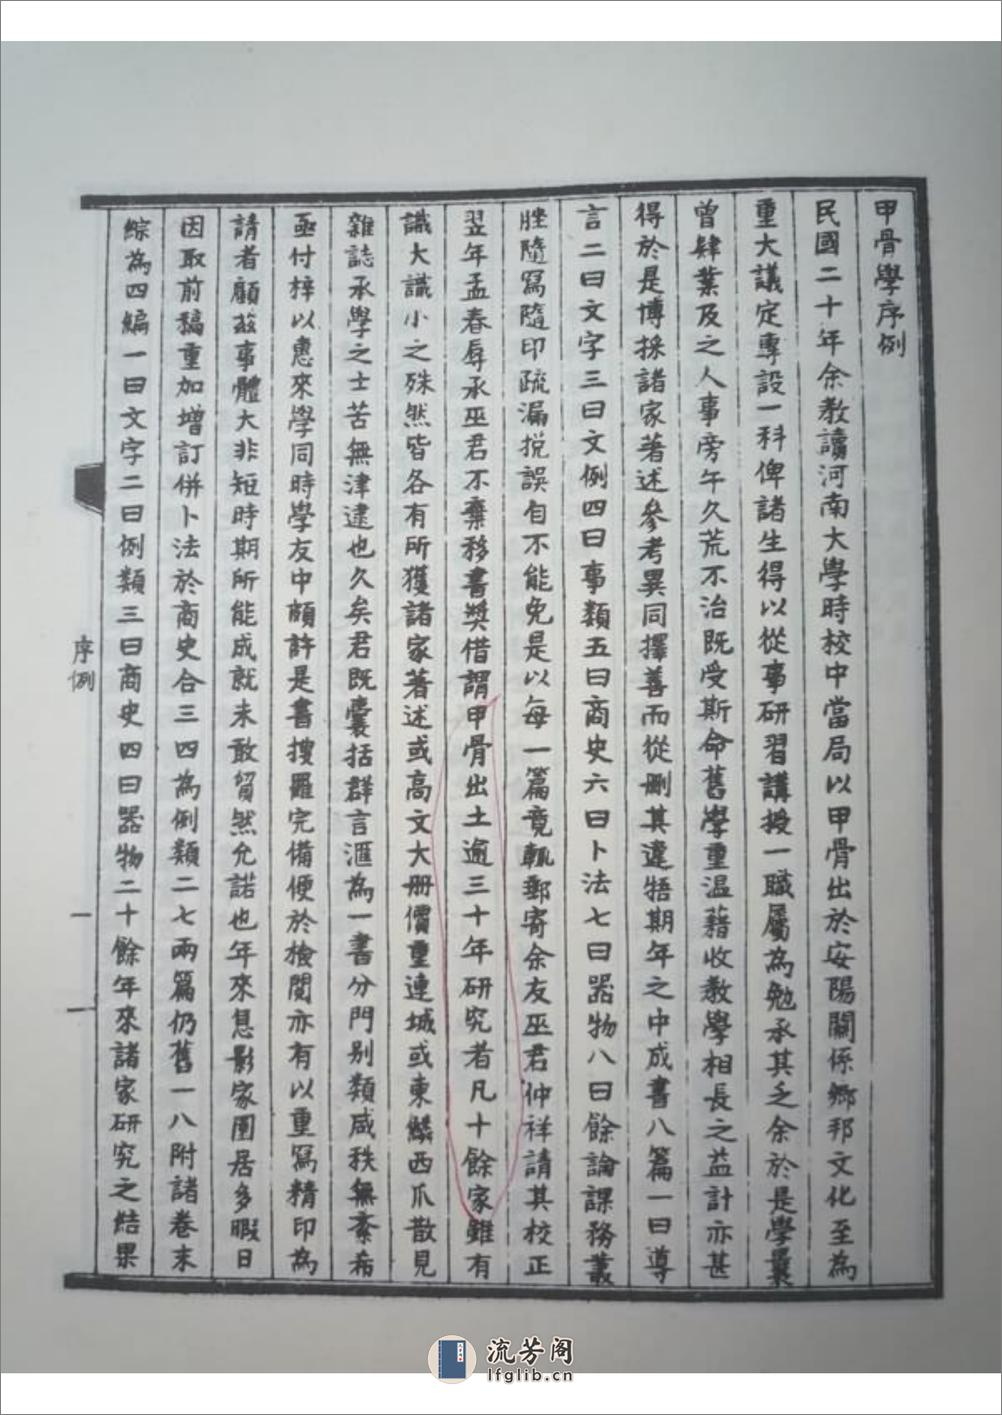 甲骨學序例
民國二十年余教讀河南大學時校中當局以甲骨出於安陽關係鄉邦文化至為
重大議定專設一科俾諸生得以從事研習講授一職屬為勉承其乏余於是學曩
曾肄業及之人事旁午久荒不治既受斯命舊學重溫藉收教學相長之益計亦甚
得於是博採諸家著述參考異同擇善而從刪其違牾期年之中成書八篇一曰導
言二曰文字三曰文例四曰事類五曰商史六曰卜法七曰器物八曰餘論課務叢
脞隨寫隨印疏漏挩誤自不能免是以每一篇竟輒郵寄余友巫君仲祥請其校正
翌年孟春辱承巫君不棄移書獎借謂甲骨出土逾三十年研究者凡十餘家雖有
識大識小之殊然皆各有所獲諸家著述或高文大册價重連城或東鱗西爪散見
雜誌承學之士苦無津逮也久矣君既囊括群言滙為一書分門別類咸秩無紊希
亟付梓以惠來學同時學友中頗許是書搜羅完備便於檢閱亦有以重寫精印為
請者顧茲事體大非短時期所能成就未敢貿然允諾也年來息影家園居多暇日
因取前稿重加增訂併卜法於商史合三四為例類二七兩篇仍舊一八附諸卷末
綜為四編一曰文字二曰例類三曰商史四曰器物二十餘年來諸家研究之結果
序例
一
一
流芳阁
lfglib.cn